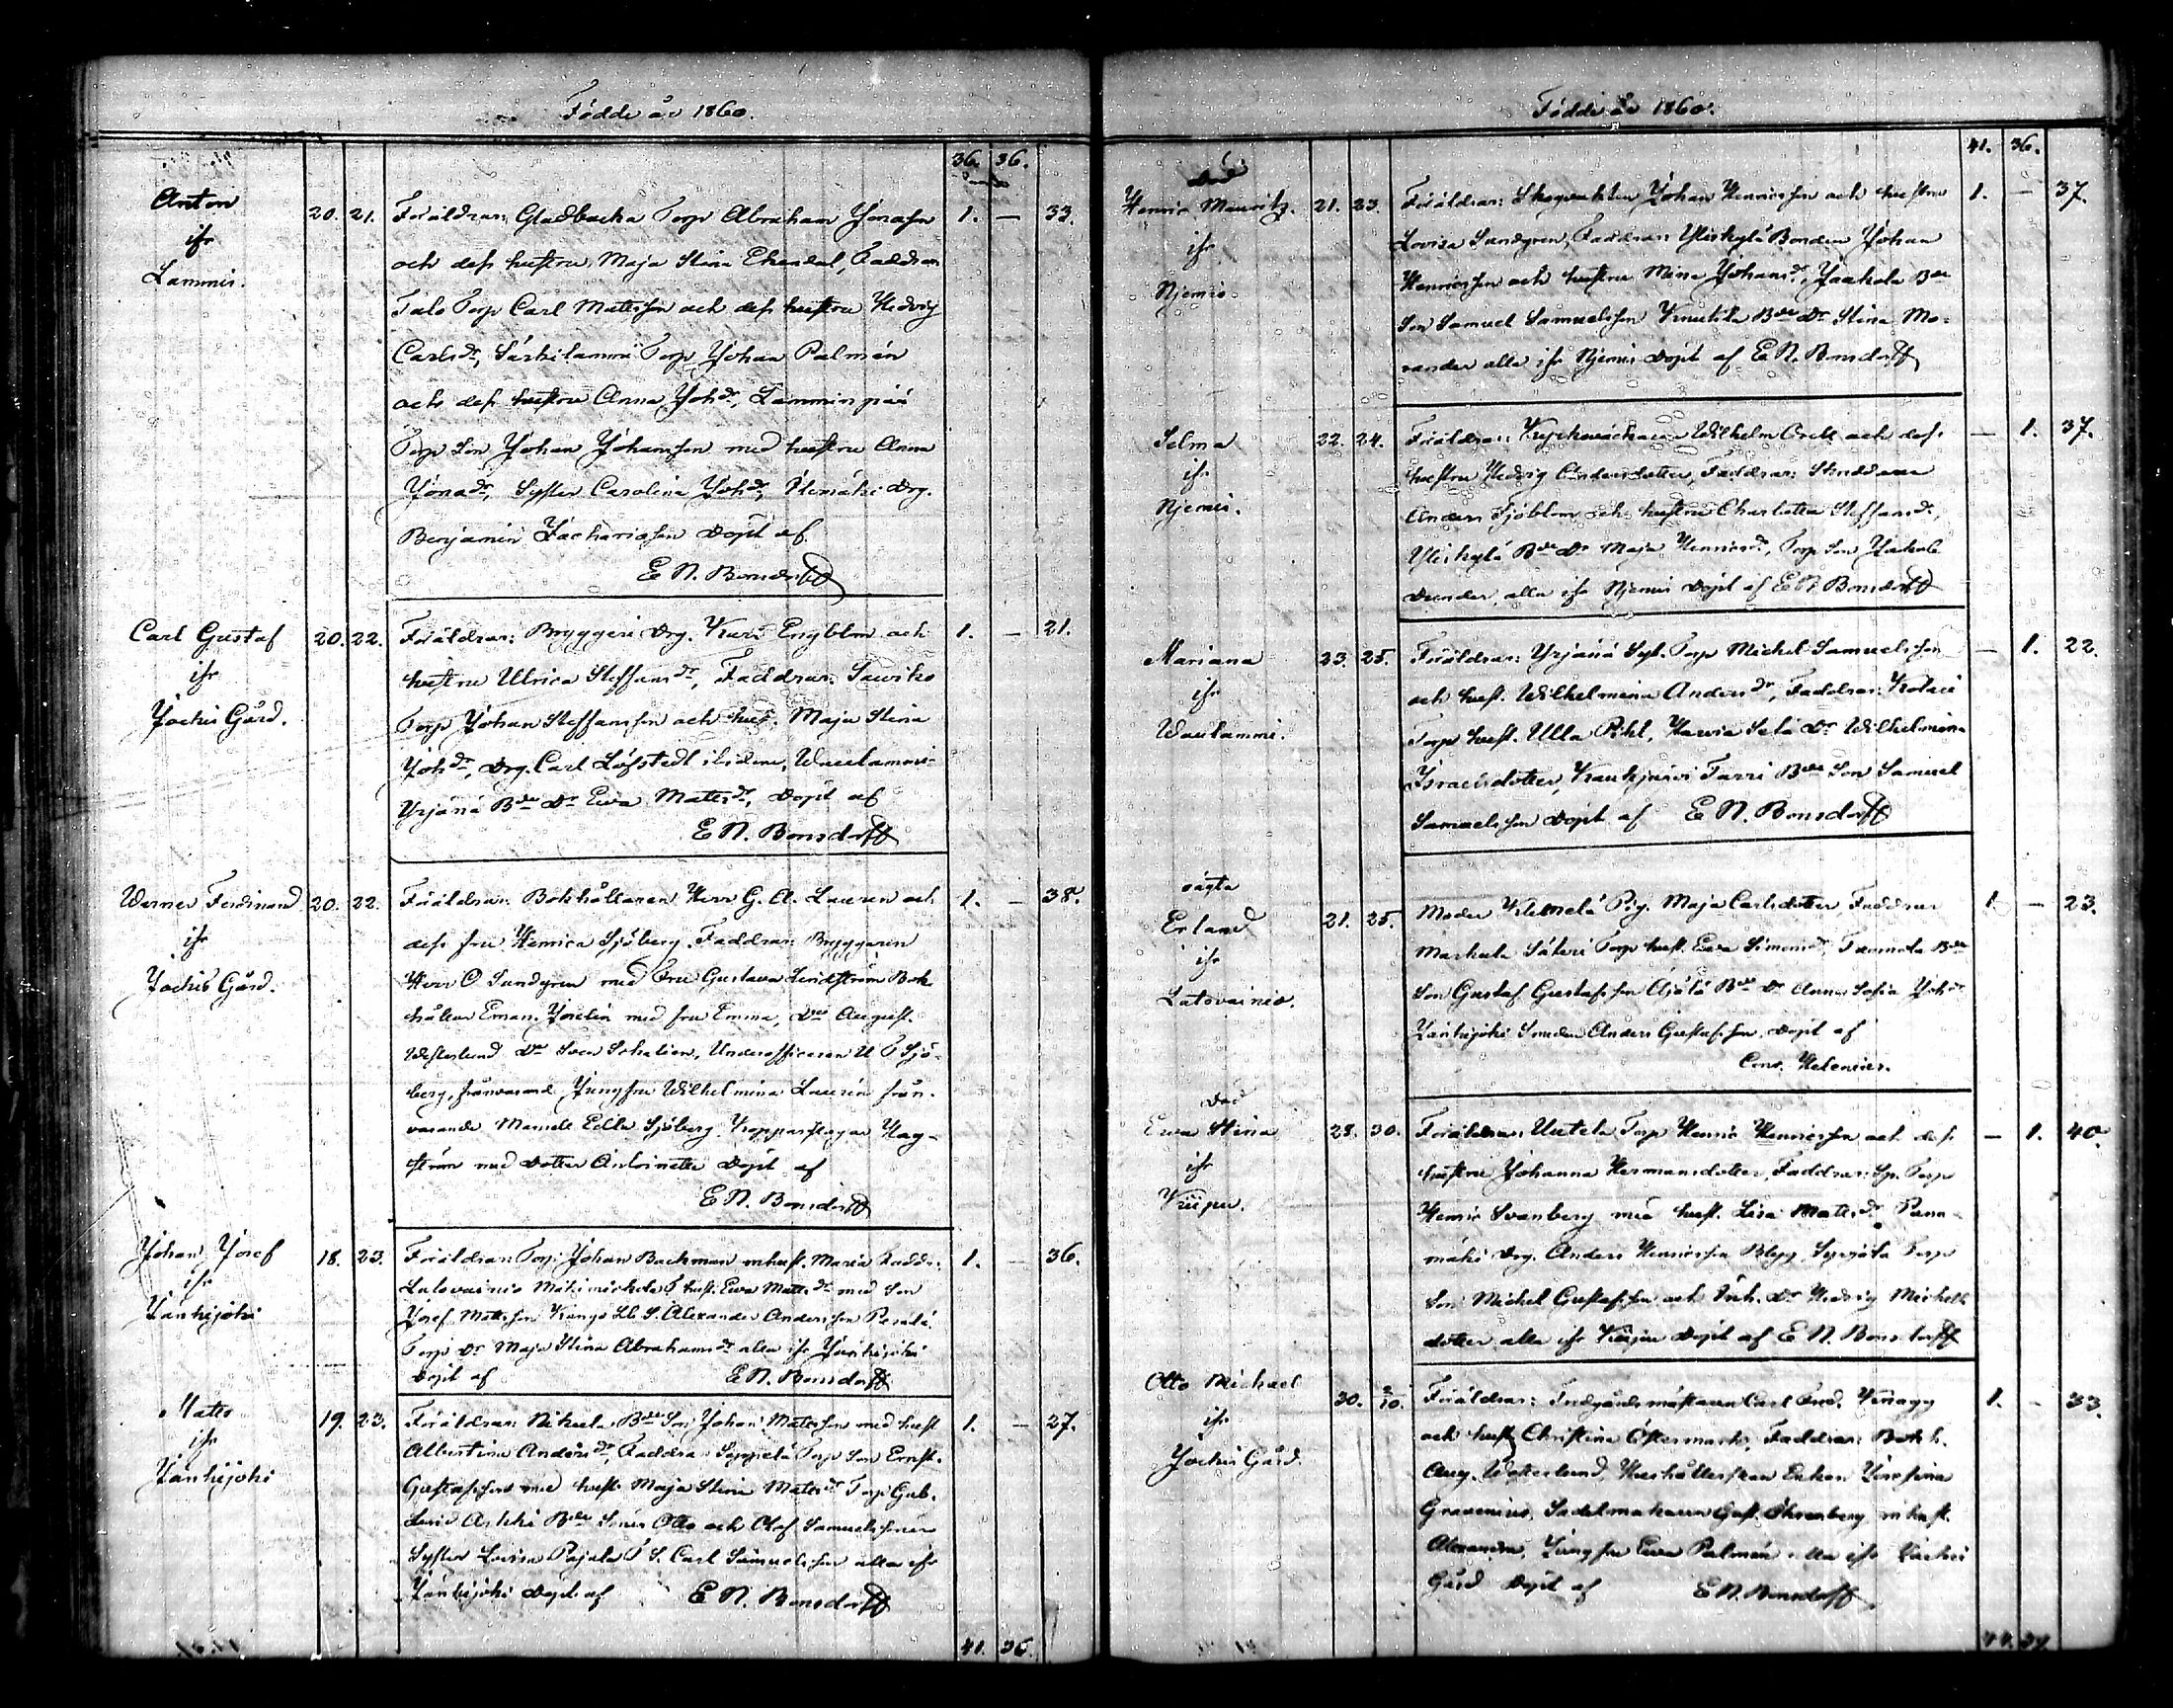 Födde år 1860.
36. 36.
Anton
ifr
Lammis.
20. 21. Föräldrar: Gladbacka Torp. Abraham Jonasson 1. — 33.
och dess hustru Maja Stina Ekendal, Faddrar
Talo Torp Carl Matsson och dess hustru Hedvig
Carlsdr, Särkilammi Torp Johan Palmén
och dess hustru Anna Johdr, Lamminpää
Torp Son Johan Johansson med hustru Anna
Jonadr, Syster Carolina Johdr, Drg.
Benjamin Zachariasson Döpt af
E N. Bonsdorff
Carl Gustaf
ifr
Jockis Gård.
20. 22. Föräldrar: Bryggeri Drg. Engblom och 1. — 21.
hustru Ulrica Steffansdr, Faddrar: Sawiko
Torp Johan Steffansson och hust. Maja Stina
Johdr, Drg. Carl Löfstedt Waulammi
Yrjänä Bde Dr Ewa Matsdr, Döpt af
E N. Bonsdorff
Werner Ferdinand
ifr
Jockis Gård.
20. 22. Föräldrar: Bokhållaren Herr G. A. Lauren och 1. — 38.
dess fru Henrica Sjöberg. Faddrar: Bryggaren
Herr O Sundgren med Fru Gustava Lindström Bok
hållar Eman. med fru Emma, Dro August.
Westerlund Dr Sven Underofficeren U F Sjö-
berg, frånvarand Jungfru Wilhelmina Laurén från-
varande Mamsell Edla Sjöberg Kopparslagar Hag-
ström med Dotter Antoinette Döpt af
E N. Bonsdorff
Johan Josef
ifr
Jänhijoki
18. 23. Föräldrar: Torp. Johan Backman mhust. Maria Faddr: 1. — 36.
Latovainio T hust. Ewa Mattsdr med Son
Josef Mattsson S. Alexander Andersson
Torp Dr Maja Stina Abrahamsdr alla ifr Jänhijoki
Döpt af E N. Bonsdorff
Mats
ifr
Jänhijoki
19. 23. Föräldrar: Bde Son Johan Matsson med hust 1. — 27.
Albertina Andersdr, Faddrar: Seppelä Torp Son Ernst.
Gustafsson med hust. Maja Stina Matsdr Torp Gub.
Bde Söner Otto och Olof Samuelssöner
Syster Lovisa T S. Carl Samuelsson alla ifr
Jänhijoki Döpt af E N. Bonsdorff
41. 36.
Födde år 1860.
41. 36.
Död
Henric Mauritz.
ifr
Njemis
21. 23. Föräldrar: Skogvakten Johan Henricsson och hustru 1. — 37.
Lovisa Sundgren, Faddrar: Yliskylä Bonden Johan
Henricsson och hustru Mina Johansdr, Jaakola Bde
Son Samuel Samuelsson Bde Dr Stina Mo-
rander alla ifr Njemis Döpt af E N. Bonsdorff
Selma
ifr
Njemis.
22. 24. Föräldrar: Kyrkowäktaren Wilhelm och dess — 1. 37.
hustru Hedvig Andersdotter, Faddrar:
Anders Sjöblom och hustru Charlotta Steffansdr,
Yliskylä Bde Dr Maja Henricsdr, Torp Son
alla ifr Njemis Döpt af E N Bonsdorff
Mariana
ifr
Waulammi.
23. 25. Föräldrar: Yrjänä Torp Michel Samuelsson — 1. 22.
och hust. Wilhelmina Andersdr, Faddrar:
Torp hust. Ulla Pihl, Dr Wilhelmina
Israelsdotter, Kaukjärvi Tarri Bde Son Samuel
Samuelsson Döpt af E N. Bonsdorff
oägta
Erland
ifr
Latovainio.
21. 25. Moder Pig. Maja Carlsdotter, Faddrar 1. — 23.
Markula Säteri Torp hust. Ewa Simonsdr, Tammela Bde
Son Gustaf Gustafsson Äjälä Bde Dr Anna Sofia Johdr
Jänhijoki Smeden Anders Gustafsson Döpt af
Cons. Helenius.
Död
Ewa Stina
ifr
Kuijpu.
28. 30. Föräldrar: Uutela Torp Henric Henricsson och dess — 1. 40
hustru Johanna Hermansdotter, Faddrar: Torp
Henric Svanberg med hust. Lisa Matsdr,
mäki Drg. Anders Henricsson Torp
Son Michel Gustafsson och Dr Hedvig Michels
dotter alla ifr Döpt af E N. Bonsdorff
Otto Michael
ifr
Jockis Gård.
30. 2/10. Föräldrar: Trädgårdsmästaren Carl Fred. 1. — 33.
och hust Christina Östermark, Faddrar: Bokh.
Aug. Westerlund, Hushållerskan Enkan Josefina
Gravenius, Sadelmakaren Gust. Öhrnberg m hust.
Alexandra, Jungfru Ewa Palmén alla ifr Jockis
Gård Döpt af E N. Bonsdorff